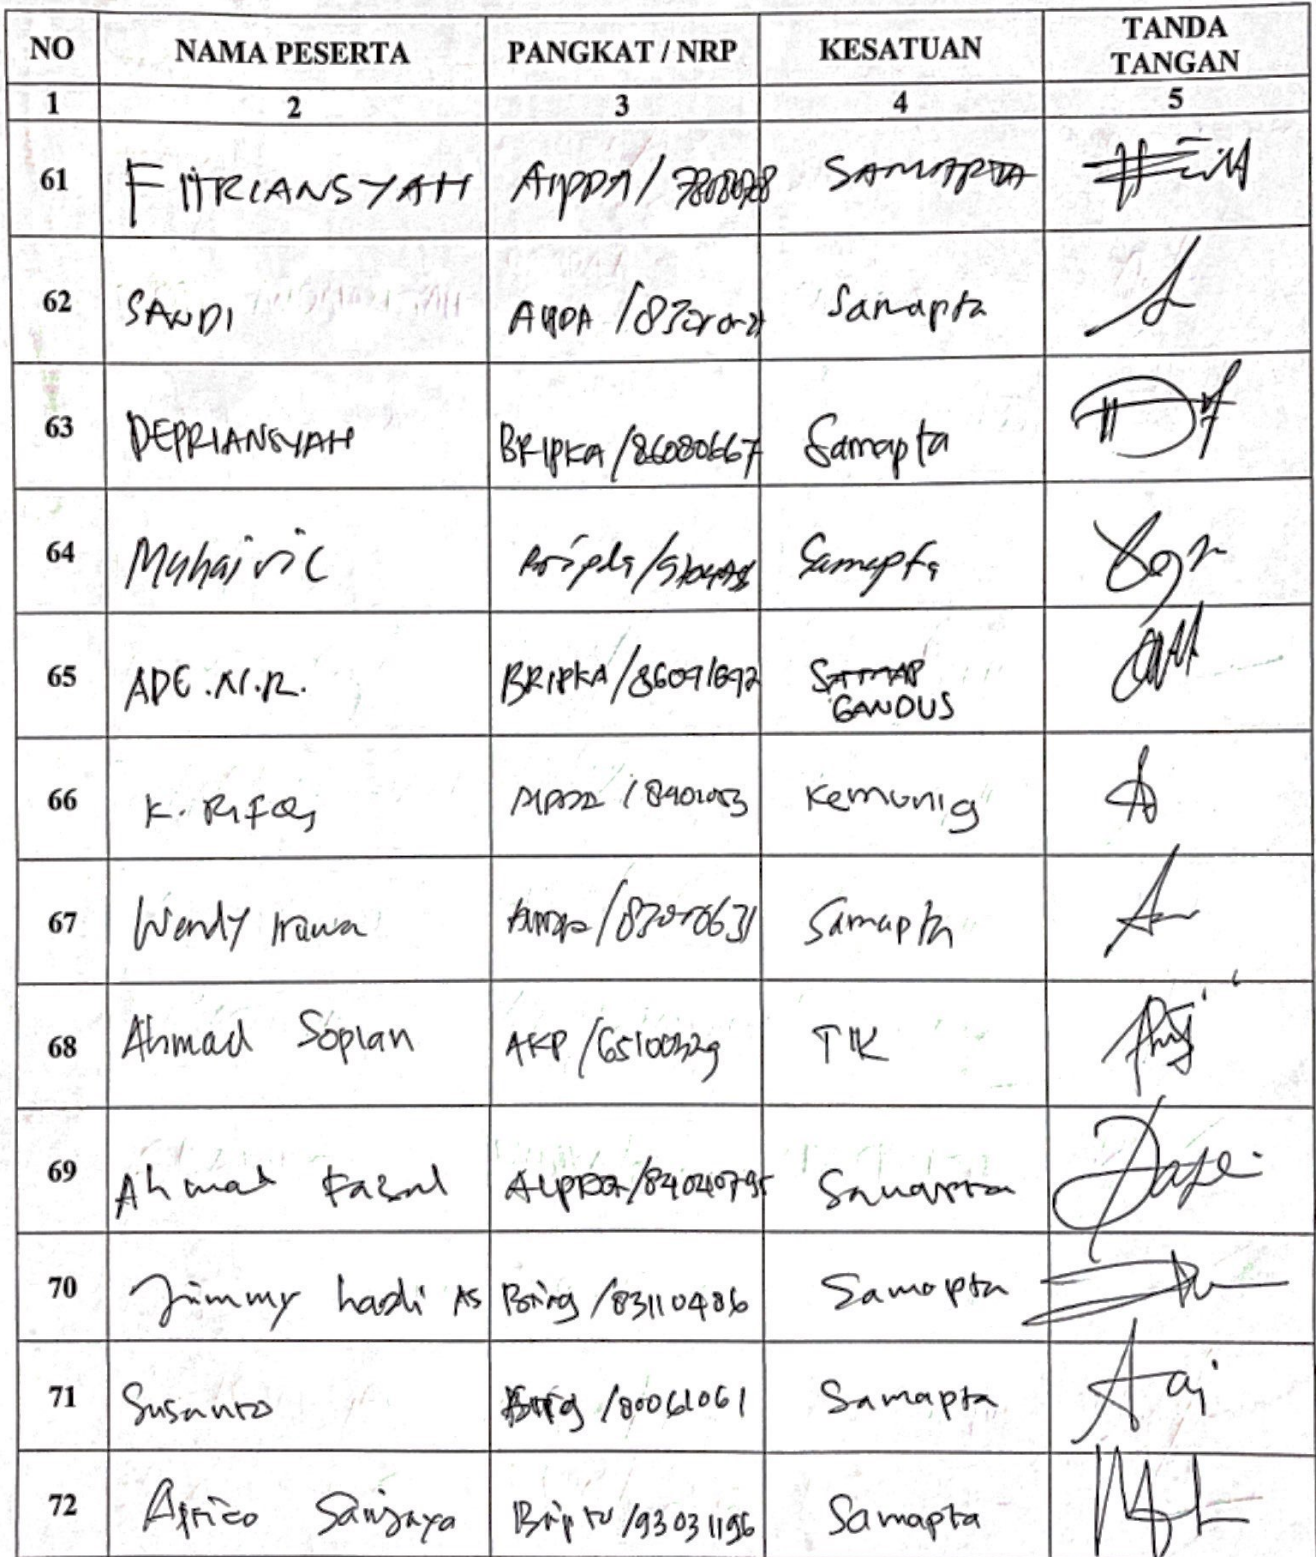 NO NAMA PESERTA PANGKAT / NRP KESATUAN TANDA TANGAN
1 2 3 4 5
61 FITRIANSYAH AIPDA / SAMAPTA
62 SANDI AIPDA / Samapta
63 DEPRIANSYAH BRIPKA /86080667 Samapta
64 Bripka / Samapta
65 ADE .N.R. BRIPKA /86091692 GANDUS
66 K. Kemunig
67 Wendy Irawa /83010631 Samapta
68 Ahmad Sopian AKP / TIK
69 Ahmad AIPDA/ Samapta
70 Jimmy hadi AS Brig /83110486 Samapta
71 Susanto Brig /80061061 Samapta
72 Africo Sanjaya Briptu /93031196 Samapta